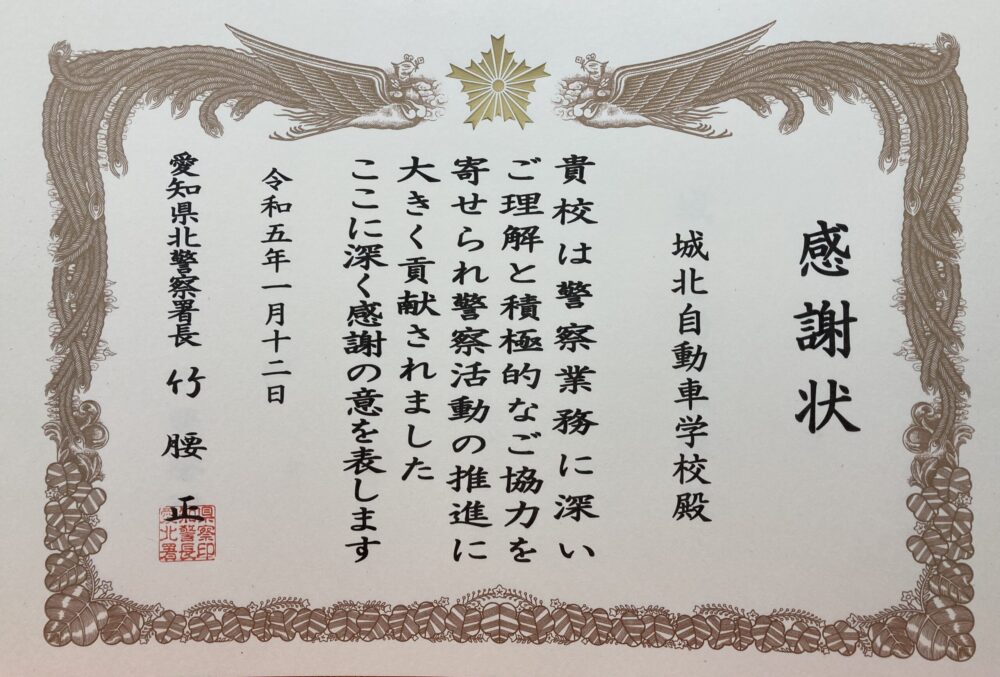 感謝状
城北自動車学校殿
貴校は警察業務に深い
ご理解と積極的なご協力を
寄せられ警察活動の推進に
大きく貢献されました
ここに深く感謝の意を表します
令和五年一月十二日
愛知県北警察署長 竹腰正